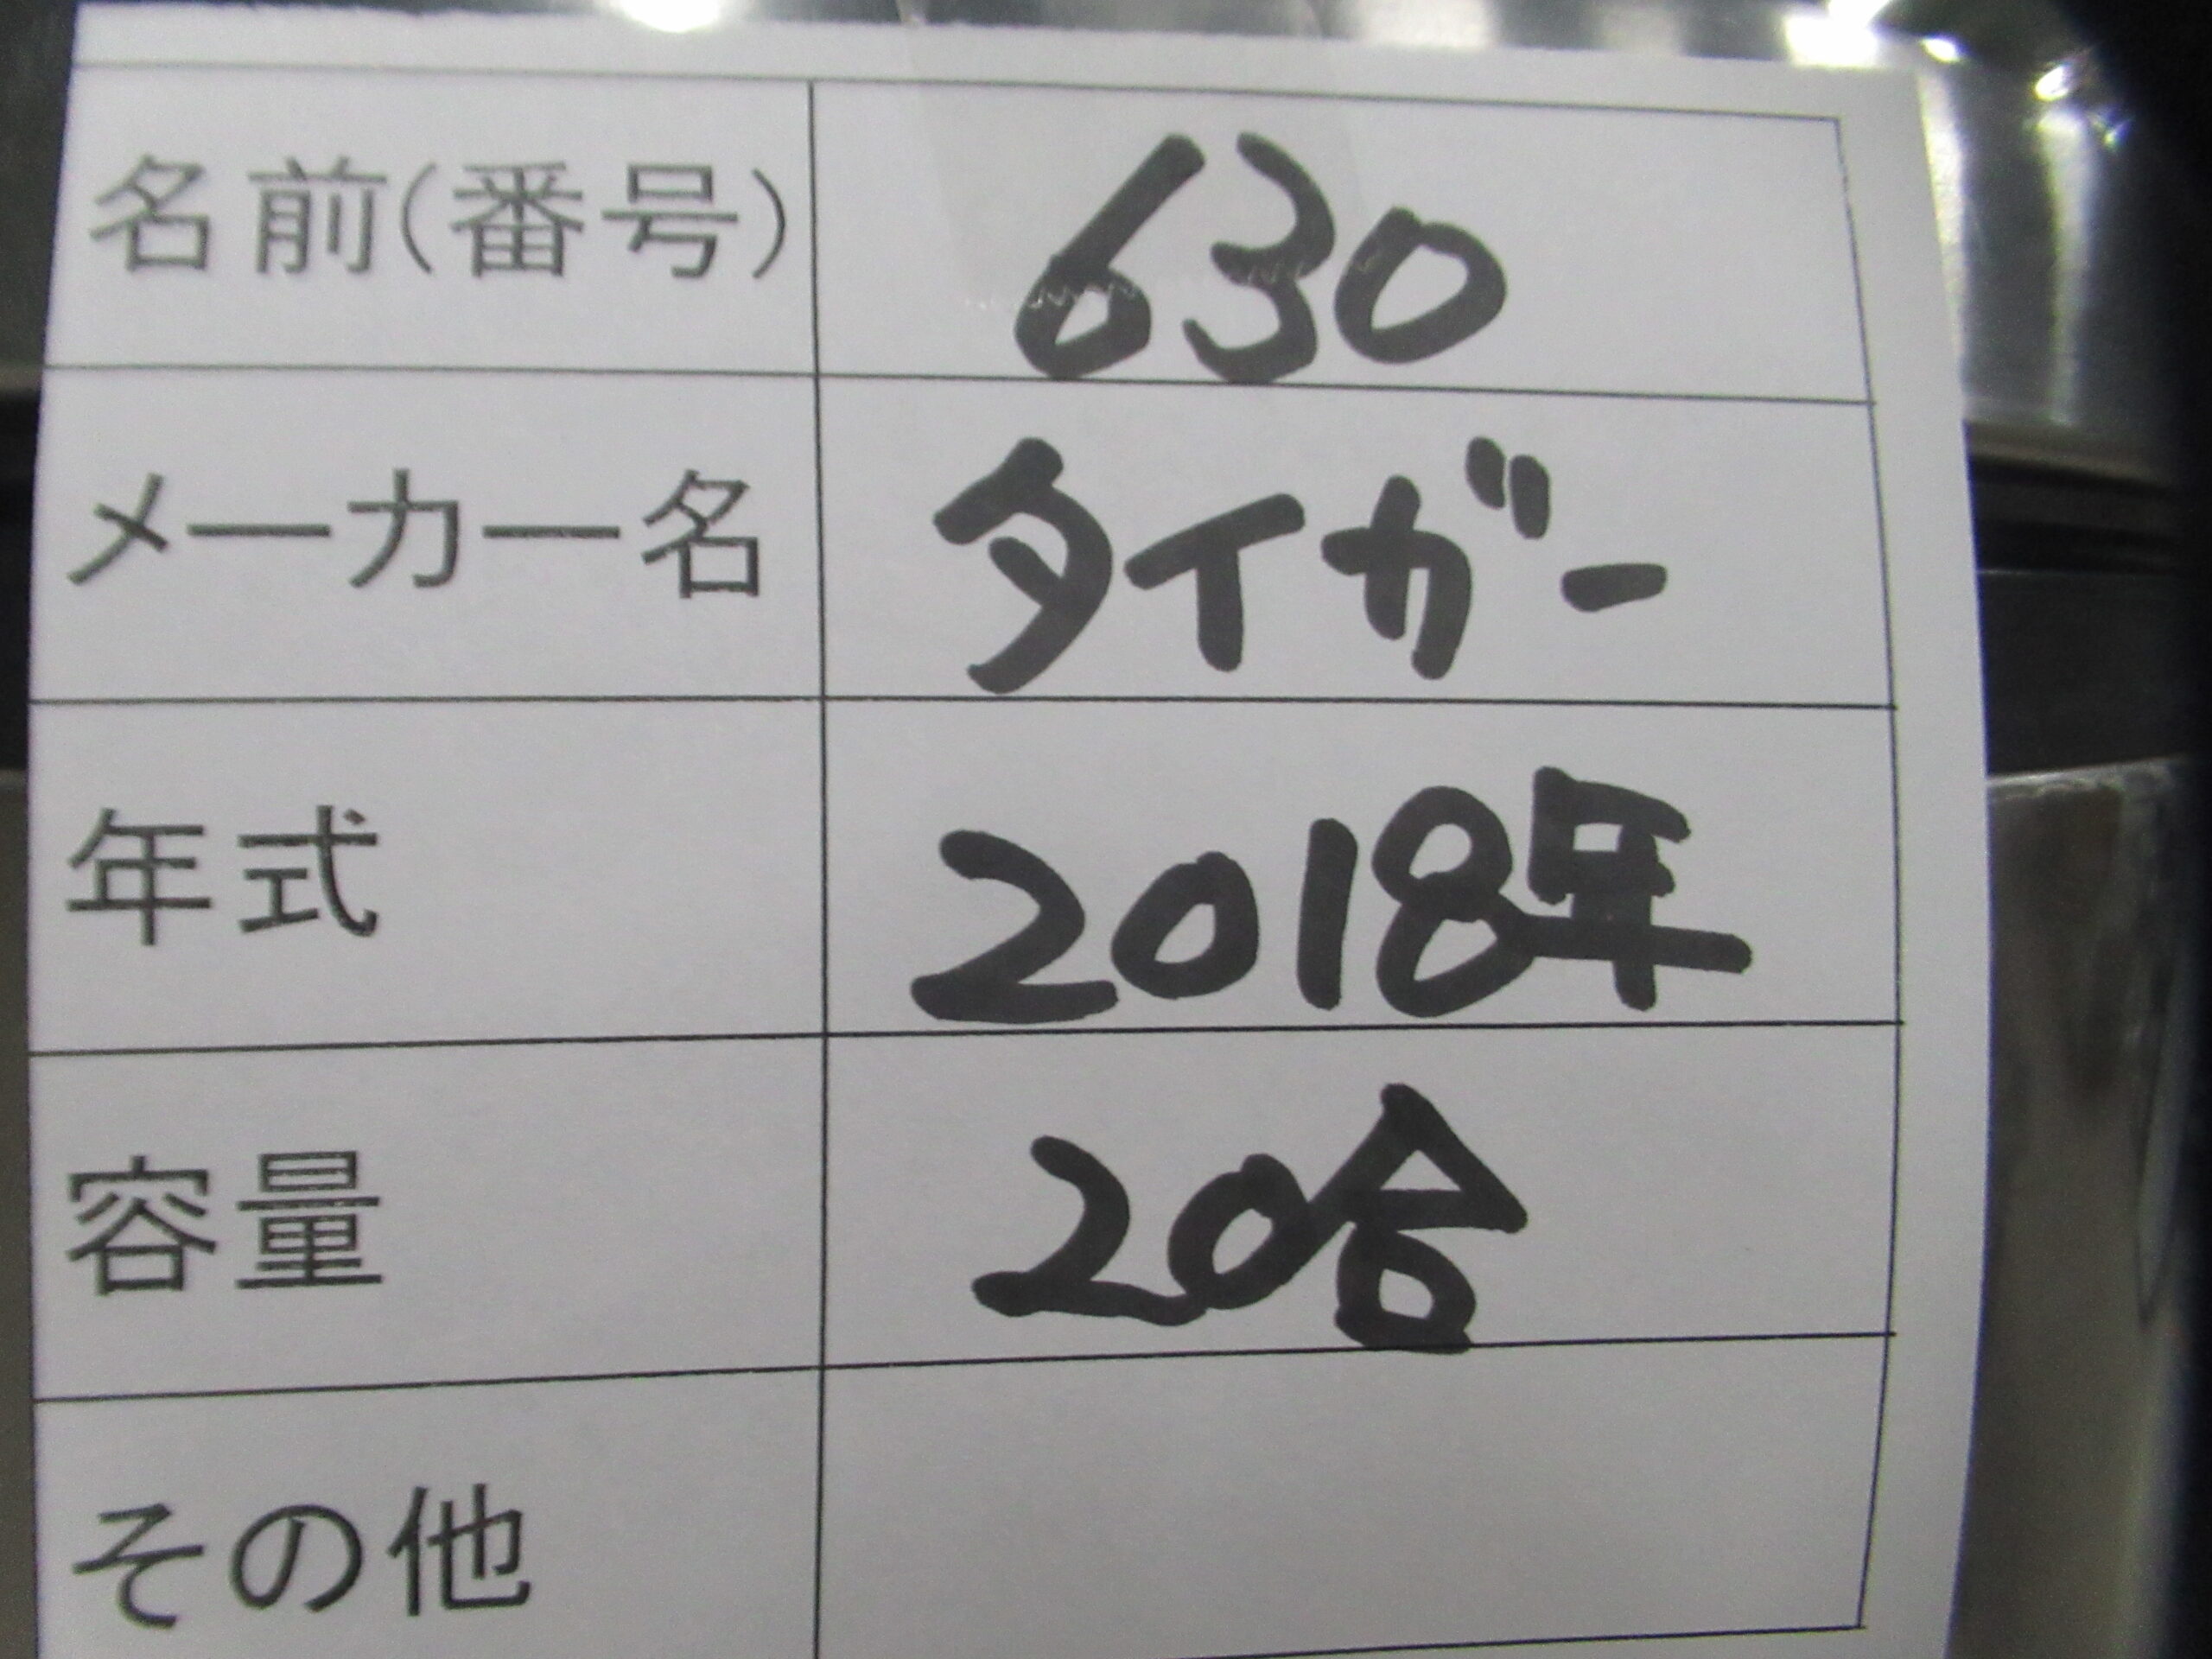 名前(番号) 630
メーカー名 タイガー
年式 2018年
容量 20合
その他